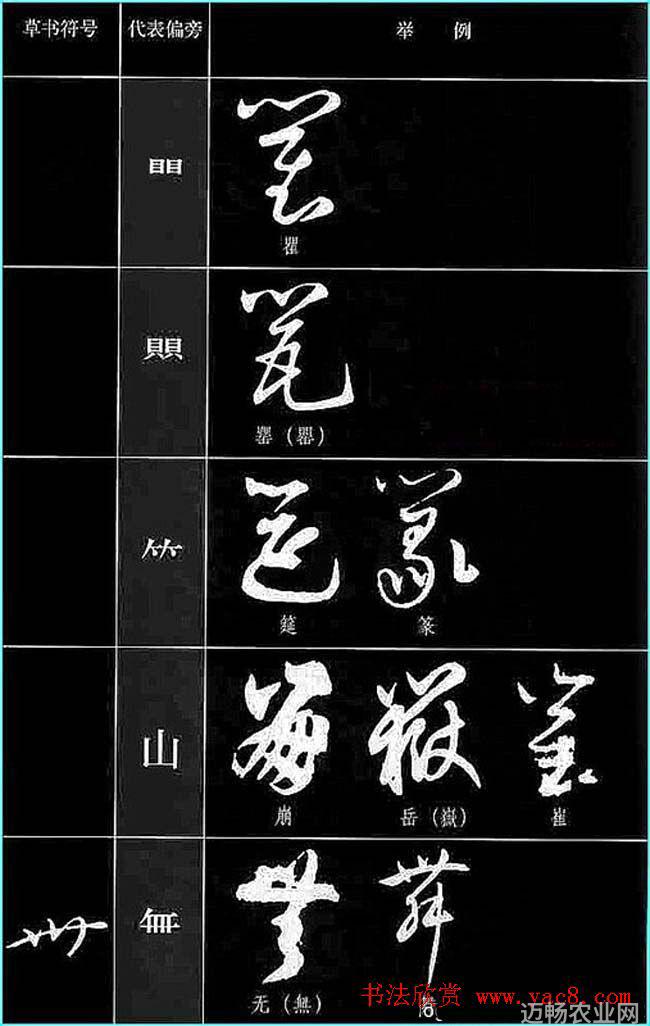 草书符号 代表偏旁 举例
䀠 瞿
賏 罂（罌）
竹 筵 篆
山 崩 岳（嶽） 崔
無 无（無）
书法欣赏 www.yac8.com
迈畅农业网